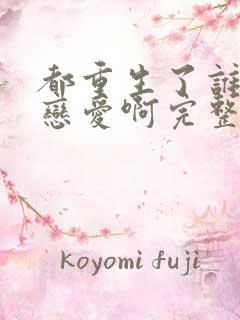 都重生了誰
戀愛啊完整
Koyomi fuji